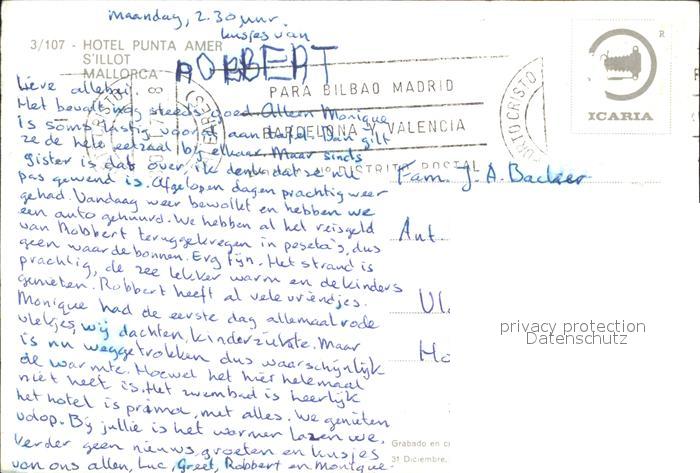 Maandag, 2.30 uur.
kusjes van
ROBBERT
3/107 - HOTEL PUNTA AMER
S'ILLOT
MALLORCA
PARA BILBAO MADRID
BARCELONA Y VALENCIA
DISTRITO POSTAL
PORTO CRISTO
R
ICARIA
Lieve allebei,
Het bevalt nog steeds goed. Alleen Monique
is soms lastig vooral aan tafel. Dan gilt
ze de hele eetzaal bij elkaar. Maar sinds
gister is dat over, ik denk dat ze nu
pas gewend is. Afgelopen dagen prachtig weer
gehad. Vandaag weer bewolkt en hebben we
een auto gehuurd. We hebben al het reisgeld
van Robbert teruggekregen in peseta's, dus
geen waardebonnen. Erg fijn. Het strand is
prachtig, de zee lekker warm en de kinders
genieten. Robbert heeft al vele vriendjes.
Monique had de eerste dag allemaal rode
vlekjes, wij dachten, kinderziekte. Maar
is nu weggetrokken dus waarschijnlijk
de warmte. Hoewel het hier helemaal
niet heet is. Het zwembad is heerlijk
het hotel is prima, met alles. We genieten
volop. Bij jullie is het warmer lazen we.
Verder geen nieuws, groeten en kusjes
van ons allen, Luc, Greet, Robbert en Monique.
Fam. J. A. Backer
Ant
Vl
Ho
privacy protection
Datenschutz
Grabado en
31 Diciembre,